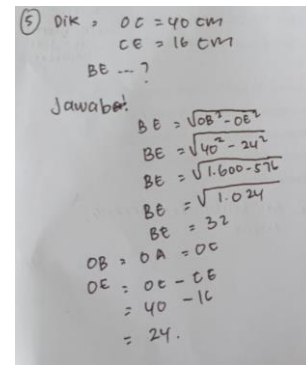 ⑤ Dik : OC = 40 cm
CE = 16 cm
BE ... ?
Jawab!
BE = √OB² - OE²
BE = √40² - 24²
BE = √1.600 - 576
BE = √1.024
BE = 32
OB = OA = OC
OE = OC - CE
= 40 - 16
= 24.